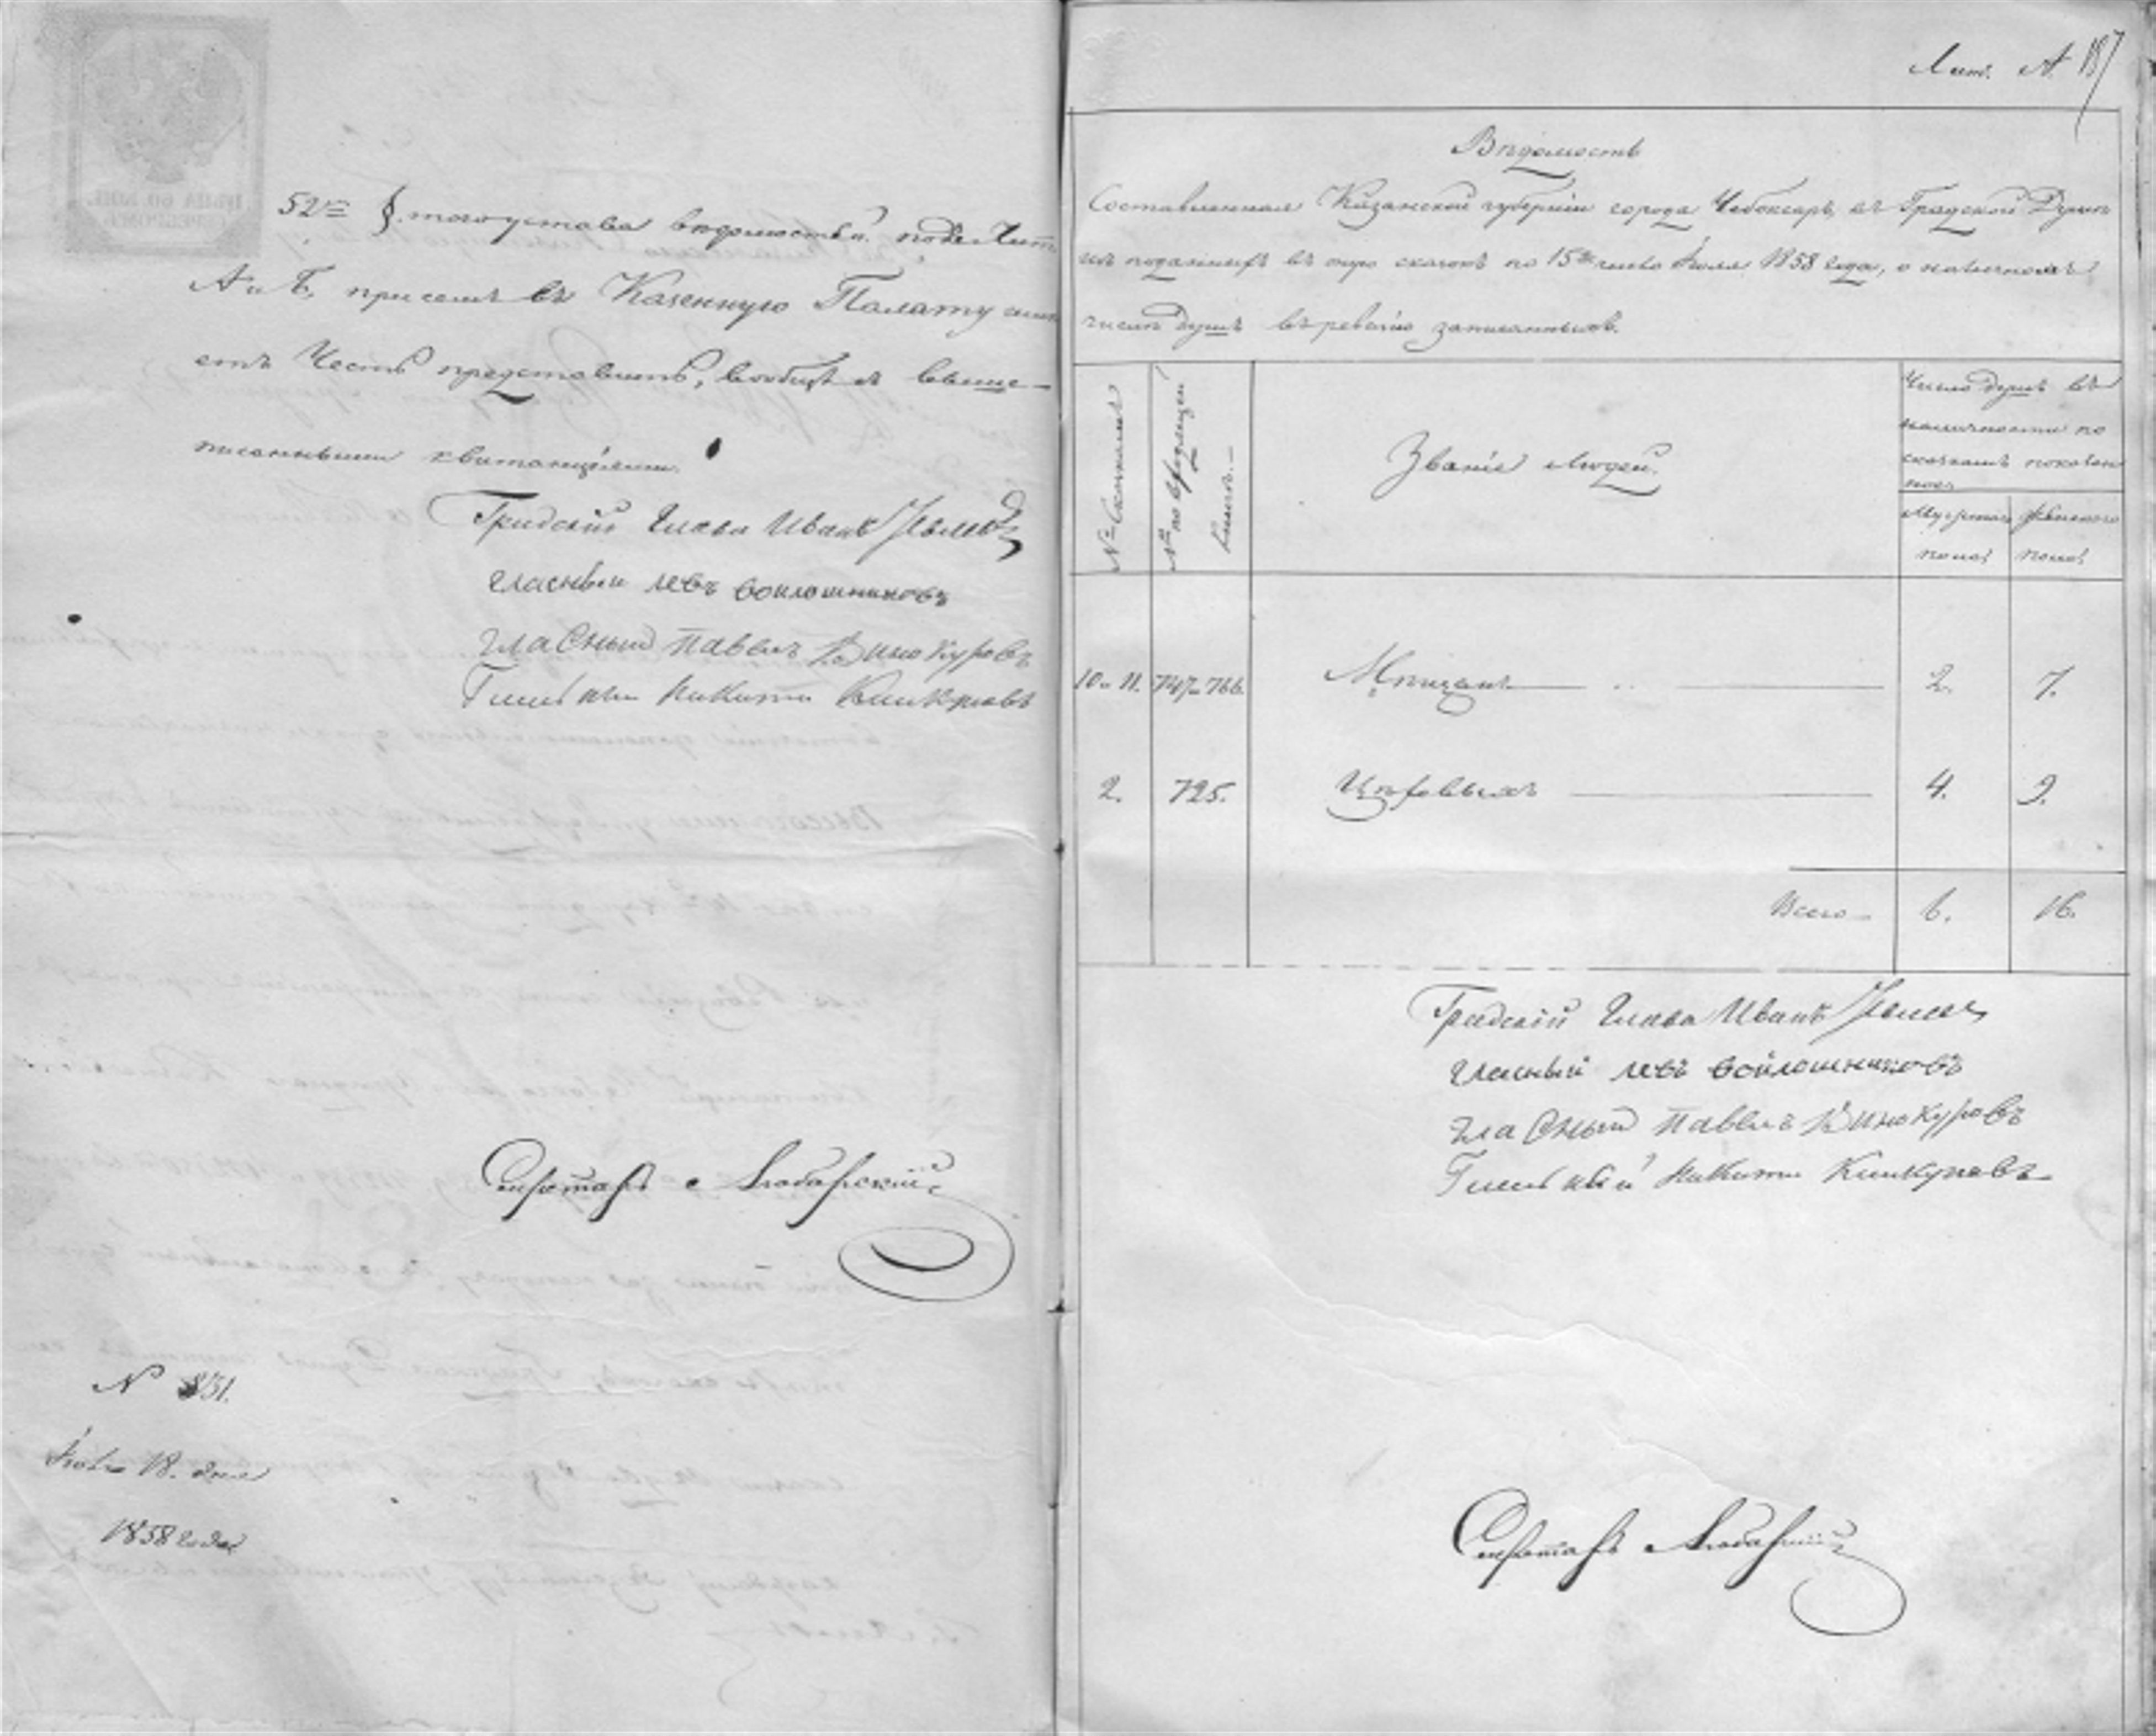 52м § того устава ведомости подъ Лит.
А и Б, при семъ въ Казенную Палату имѣ
етъ Честь представить, вообще съ выше-
писанными квитанціями.
Градскій Глава Иванъ
гласный левъ войлошниковъ
гласный павелъ Винокуровъ
Гласный Никита
Секретарь
N 831.
Іюля 18. дня
1858 года
Лит. А. 187
Вѣдомость
Составленная Казанской губерніи города Чебоксаръ, въ Градской Думѣ
изъ поданныхъ въ оную сказокъ по 15е число Іюля 1858 года, о наличномъ
числѣ душъ въ ревизію записанныхъ.
№ Сказокъ
№ по входящей книгѣ.
Званіе Людей.
Число душъ въ
наличности по
сказкамъ показан
ное
Мужеска пола
Женскаго пола
10 и 11. 747 и 766. Мѣщанъ 2. 7.
2. 725. Цѣховыхъ 4. 9.
Всего 6. 16.
Градскій Глава Иванъ
гласный левъ войлошниковъ
гласный павелъ Винокуровъ
Гласный Никита
Секретарь